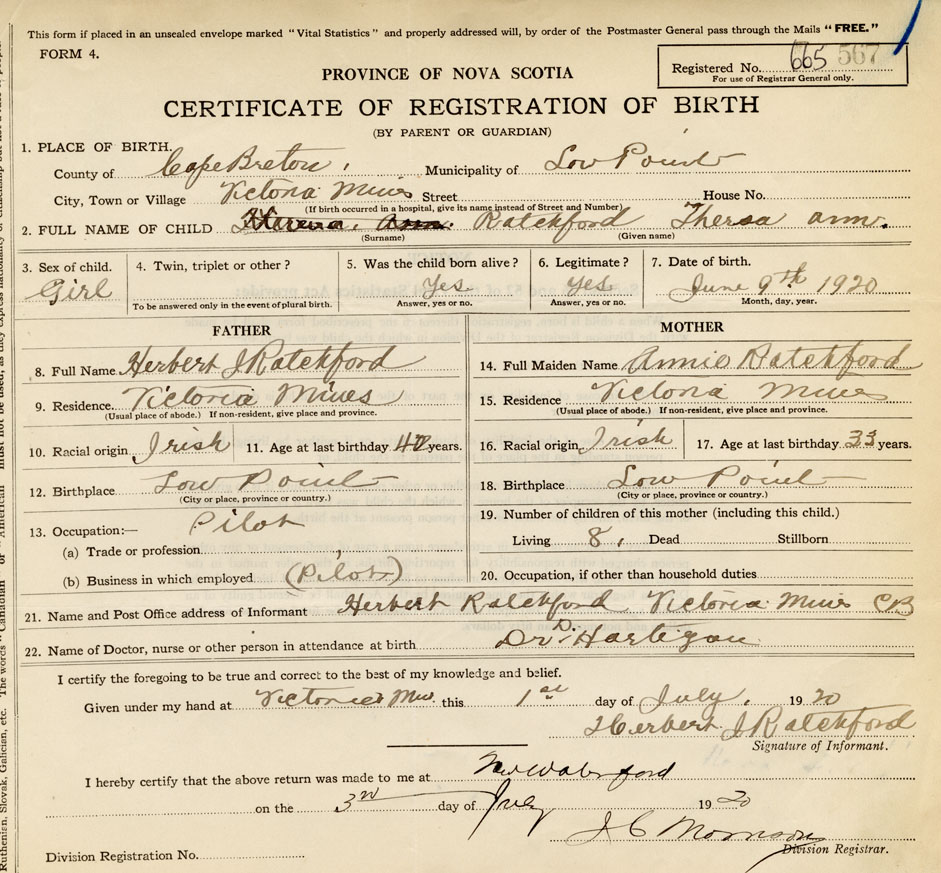 This form if placed in an unsealed envelope marked "Vital Statistics" and properly addressed will, by order of the Postmaster General pass through the Mails "FREE."
FORM 4.
Registered No. 665 567
For use of Registrar General only.
PROVINCE OF NOVA SCOTIA
CERTIFICATE OF REGISTRATION OF BIRTH
(BY PARENT OR GUARDIAN)
1. PLACE OF BIRTH.
County of Cape Breton, Municipality of Low Point
City, Town or Village Victoria Mines Street House No.
(If birth occurred in a hospital, give its name instead of Street and Number)
2. FULL NAME OF CHILD Ratchford Theresa Ann.
(Surname) (Given name)
3. Sex of child. 4. Twin, triplet or other? 5. Was the child born alive? 6. Legitimate? 7. Date of birth.
Girl Yes Yes June 9th 1920
To be answered only in the event of plural birth. Answer, yes or no. Answer, yes or no. Month, day, year.
FATHER
8. Full Name Herbert J Ratchford
9. Residence. Victoria Mines
(Usual place of abode.) If non-resident, give place and province.
10. Racial origin Irish 11. Age at last birthday 42 years.
12. Birthplace Low Point
(City or place, province or country.)
13. Occupation:— Pilot
(a) Trade or profession
(b) Business in which employed (Pilot)
MOTHER
14. Full Maiden Name Annie Ratchford
15. Residence Victoria Mines
(Usual place of abode.) If non-resident, give place and province.
16. Racial origin Irish 17. Age at last birthday 33 years.
18. Birthplace Low Point
(City or place, province or country.)
19. Number of children of this mother (including this child.)
Living 8, Dead Stillborn
20. Occupation, if other than household duties
21. Name and Post Office address of Informant Herbert Ratchford Victoria Mines CB
22. Name of Doctor, nurse or other person in attendance at birth Dr. D. Hartigan
I certify the foregoing to be true and correct to the best of my knowledge and belief.
Given under my hand at Victoria this 1st day of July, 1920
Herbert J Ratchford
Signature of Informant.
I hereby certify that the above return was made to me at New Waterford
on the 3rd day of July 1920
J C Morrison
Division Registrar.
Division Registration No.